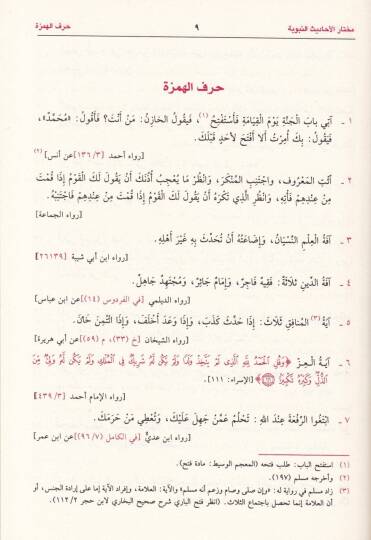 مختار الأحاديث النبوية ٩ حرف الهمزة
حرف الهمزة
١ ـ آتِي بابَ الجَنَّةِ يَوْمَ القِيَامَةِ فَأَسْتَفْتِحُ(١)، فَيَقُولُ الخَازِنُ: مَنْ أَنْتَ؟ فَأَقُولُ: «مُحَمَّدٌ»،
فَيَقُولُ: بِكَ أُمِرْتُ ألا أَفْتَحَ لأَحَدٍ قَبْلَكَ.
[رواه أحمد [٣/ ١٣٦] عن أنس](٢)
٢ ـ أئْتِ المَعْرُوفَ، واجْتَنِبِ المُنْكَرَ، وَانْظُرْ مَا يُعْجِبُ أُذُنَكَ أَنْ يَقُولَ لَكَ الْقَوْمُ إِذَا قُمْتَ
مِنْ عِنْدِهِمْ فَأْتِهِ، وَانْظُرِ الَّذِي تَكْرَهُ أَنْ يَقُولَ لَكَ الْقَوْمُ إِذَا قُمْتَ مِنْ عِنْدِهِمْ فَاجْتَنِبْهُ.
[رواه الجماعة]
٣ ـ آفَةُ العِلْمِ النِّسْيَانُ، وَإِضَاعَتُهُ أَنْ تُحَدِّثَ بِهِ غَيْرَ أَهْلِهِ.
[رواه ابن أبي شيبة [٢٦١٣٩]
٤ ـ آفَةُ الدِّينِ ثَلَاثَةٌ: فَقِيهٌ فَاجِرٌ، وَإِمَامٌ جَائِرٌ، وَمُجْتَهِدٌ جَاهِلٌ.
[رواه الديلمي [في الفردوس (١٤)] عن ابن عباس]
٥ ـ آيَةُ(٣) المُنَافِقِ ثَلَاثٌ: إِذَا حَدَّثَ كَذَبَ، وَإِذَا وَعَدَ أَخْلَفَ، وَإِذَا ائْتُمِنَ خَانَ.
[رواه الشيخان [خ (٣٣)، م (٥٩)] عن أبي هريرة]
٦ ـ آيَةُ العِزِّ ﴿وَقُلِ الْحَمْدُ لِلَّهِ الَّذِي لَمْ يَتَّخِذْ وَلَدًا وَلَمْ يَكُن لَّهُ شَرِيكٌ فِي الْمُلْكِ وَلَمْ يَكُن لَّهُ وَلِيٌّ مِّنَ
الذُّلِّ وَكَبِّرْهُ تَكْبِيرًا﴾ [الإسراء: ١١١].
[رواه الإمام أحمد [٣/ ٤٣٩]
٧ ـ ابْتَغُوا الرِّفْعَةَ عِنْدَ اللهِ: تَحْلُمُ عَمَّنْ جَهِلَ عَلَيْكَ، وَتُعْطِي مَنْ حَرَمَكَ.
[رواه ابن عديّ [في الكامل (٧/ ٩٦)] عن ابن عمر]
(١) استفتح الباب: طلب فتحه (المعجم الوسيط: مادة فتح).
(٢) وأخرجه مسلم (١٩٧).
(٣) زاد مسلم في رواية له: «وإن صلى وصام وزعم أنه مسلم» والآية: العلامة، وإفراد الآية إما على إرادة الجنس، أو
أن العلامة إنما تحصل باجتماع الثلاث. (انظر فتح الباري شرح صحيح البخاري لابن حجر ٢/ ١١٢).